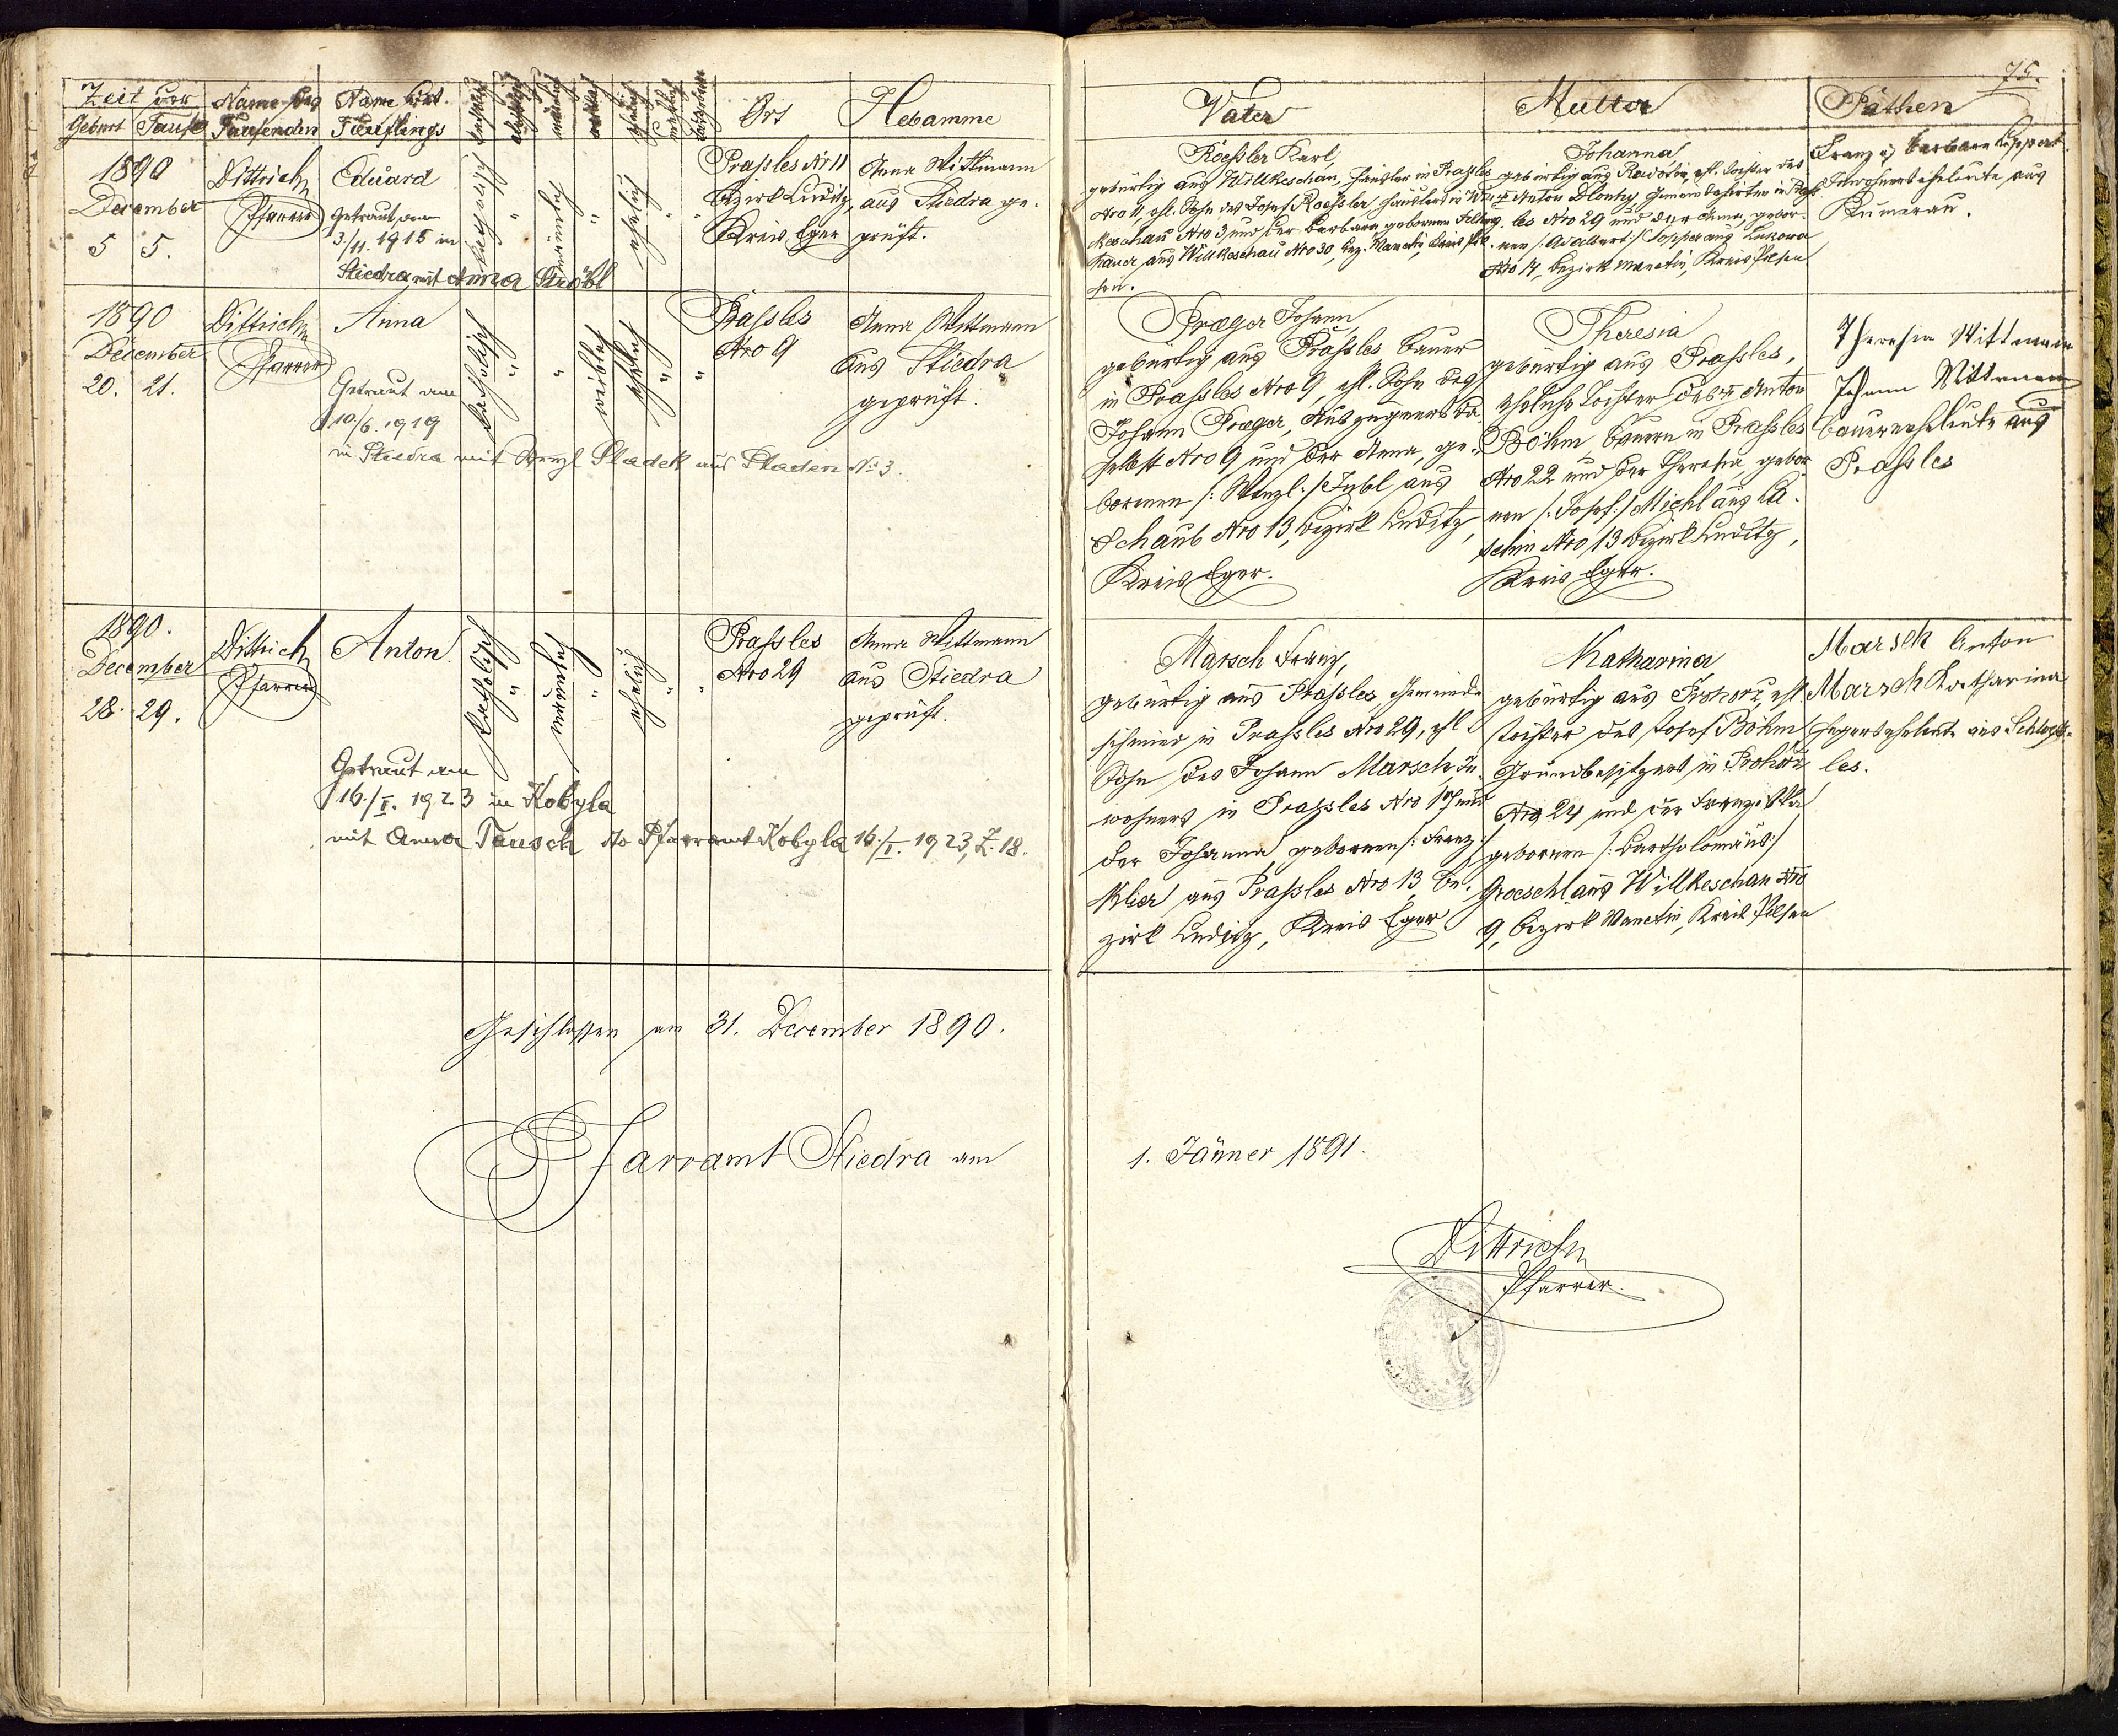 75.
Zeit der
Geburt Taufe
Name des Taufenden
Name des Täuflings
katholisch
männlich
weiblich
ehelich
Ort
Hebamme
Vater
Mutter
Pathen
1890
December
5 5.
Dittrich
Pfarrer
Eduard
Getraut am
3./11. 1915 in
Stiedra mit Anna Ströbl
katholisch
"
männlich
"
ehelich
"
"
Prassles Nr 11
Bezirk Luditz,
Kreis Eger
Anna Wittmann
aus Stiedra ge-
prüft.
Roessler Karl,
gebürtig aus Willkeschau, Häusler in Prassles
Nro 11, ehl. Sohn des Josef Roessler Häuslers in Wil-
keschau Nro 3 und der Barbara gebornen
hauer aus Willkeschau Nro 30, Bez. Manetin, Kreis Pil-
sen.
Johanna
gebürtig aus Radotin, ehl. Tochter des
Anton Blonty, Gemeindehirten in Prass-
les Nro 29 und der Anna, gebor-
nen /: Adalbert :/ Topper aus Lukowa
Nro 14, Bezirk Manetin, Kreis Pilsen
Franz u Barbara Lippert
Inwohnerseheleute aus
Kumerau.
1890
December
20. 21.
Dittrich
Pfarrer
Anna
Getraut am
10/6. 1919
in Stiedra mit Wenzl Sladek aus Sladin No 3.
katholisch
"
"
weiblich
ehelich
"
"
Prassles
Nro 9
Anna Wittmann
aus Stiedra
geprüft.
Praeger Johann
gebürtig aus Prassles Bauer
in Prassles Nro 9, ehl. Sohn des
Johann Praeger, Auszüglers da-
selbst Nro 9 und der Anna, ge-
bornen /: Wenzl :/ Zubl aus
Schaub Nro 13, Bezirk Luditz,
Kreis Eger.
Theresia
gebürtig aus Prassles,
eheliche Tochter des Anton
Böhm Bauern in Prassles
Nro 22 und der Theresia, gebor-
nen /: Josef :/ Michl aus La-
schin Nro 13 Bezirk Luditz,
Kreis Eger.
Theresia Wittmann
Johann Wittmann
Bauerseheleute aus
Prassles
1890.
December
28. 29.
Dittrich
Pfarrer
Anton
Getraut am
16./I. 1923 in Kobyla
mit Anna Tausch dto Pfarramt Kobyla 16./I. 1923, Z. 18.
katholisch
"
männlich
"
ehelich
"
"
Prassles
Nro 29
Anna Wittmann
aus Stiedra
geprüft.
Marsch Franz,
gebürtig aus Prassles, Gemeinde-
schmied in Prassles Nro 29, ehl.
Sohn des Johann Marsch, In-
wohners in Prassles Nro und
der Johanna gebornen /: Franz :/
Klier aus Prassles Nro 13 Be-
zirk Luditz, Kreis Eger
Katharina
gebürtig aus Prohorz, ehl.
Tochter des Josef Böhm
Grundbesitzers in Prohorz
Nro 24 und der Franziska
gebornen /: Bartholomäus :/
Groeschl aus Willkeschau Nro
9, Bezirk Manetin, Kreis Pilsen
Marsch Anton
Marsch Katharina
Hegerseheleute aus
les.
Geschlossen am 31. December 1890.
Pfarramt Stiedra am
1. Jänner 1891.
Dittrich
Pfarrer.